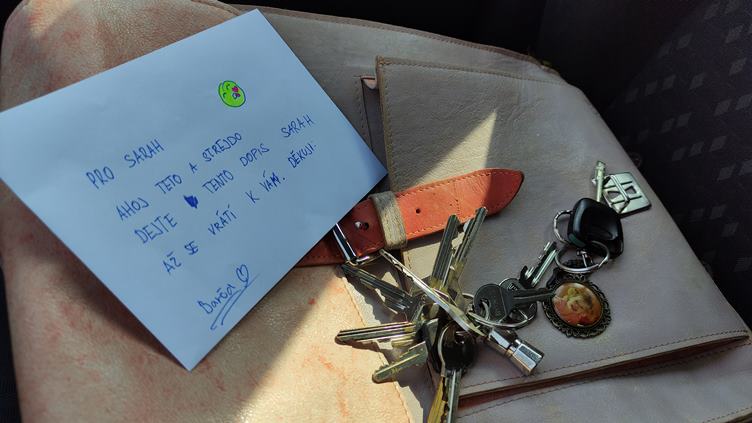 PRO SARAH
AHOJ TETO A STREJDO
DEJTE TENTO DOPIS SARAH
AŽ SE VRÁTÍ K VÁM. DĚKUJI.